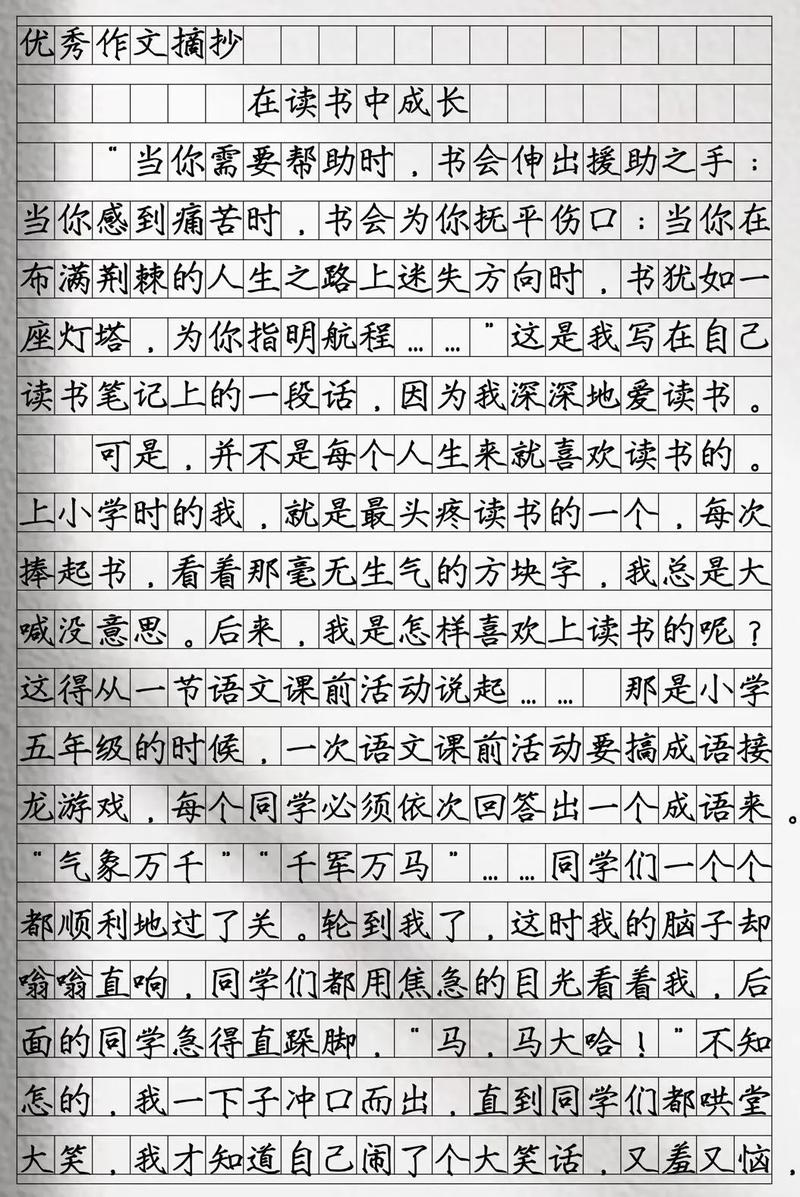 优秀作文摘抄
在读书中成长
“当你需要帮助时，书会伸出援助之手：
当你感到痛苦时，书会为你抚平伤口：当你在
布满荆棘的人生之路上迷失方向时，书犹如一
座灯塔，为你指明航程……”这是我写在自己
读书笔记上的一段话，因为我深深地爱读书。
可是，并不是每个人生来就喜欢读书的。
上小学时的我，就是最头疼读书的一个，每次
捧起书，看着那毫无生气的方块字，我总是大
喊没意思。后来，我是怎样喜欢上读书的呢？
这得从一节语文课前活动说起…… 那是小学
五年级的时候，一次语文课前活动要搞成语接
龙游戏，每个同学必须依次回答出一个成语来。
“气象万千”“千军万马”……同学们一个个
都顺利地过了关。轮到我了，这时我的脑子却
嗡嗡直响，同学们都用焦急的目光看着我，后
面的同学急得直跺脚，“马，马大哈！”不知
怎的，我一下子冲口而出，直到同学们都哄堂
大笑，我才知道自己闹了个大笑话，又羞又恼，